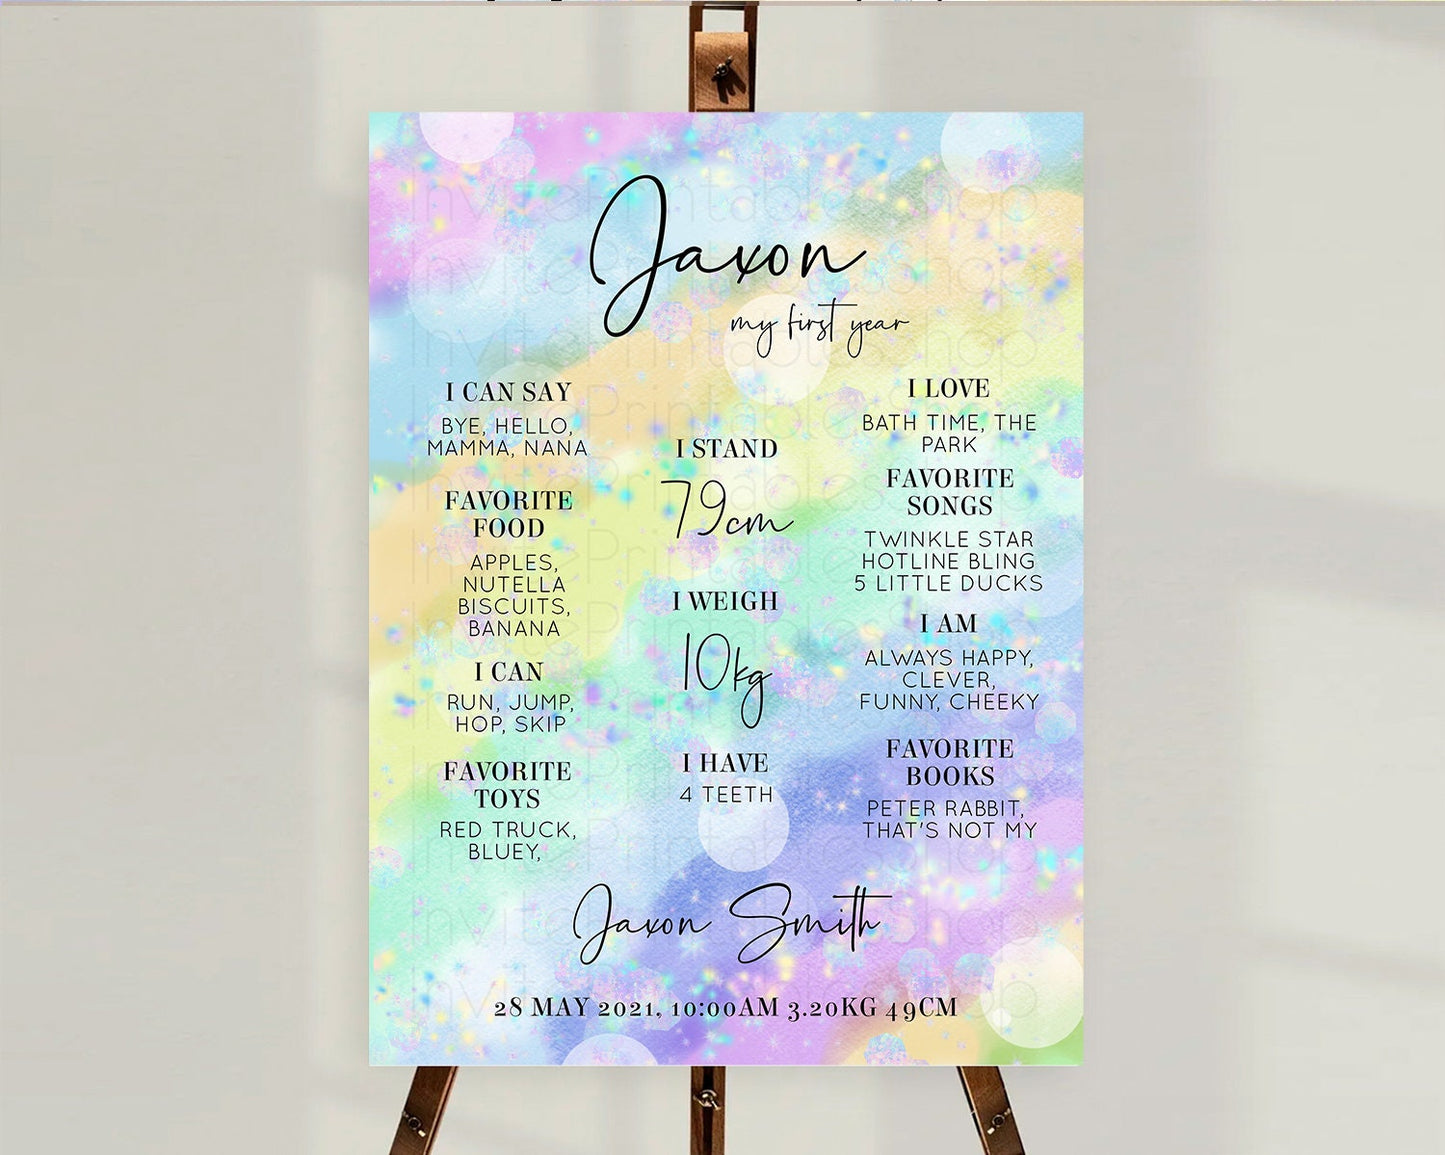 Jaxon
my first year
I CAN SAY
BYE, HELLO,
MAMMA, NANA
FAVORITE
FOOD
APPLES,
NUTELLA
BISCUITS,
BANANA
I CAN
RUN, JUMP,
HOP, SKIP
FAVORITE
TOYS
RED TRUCK,
BLUEY,
I STAND
79cm
I WEIGH
10kg
I HAVE
4 TEETH
I LOVE
BATH TIME, THE
PARK
FAVORITE
SONGS
TWINKLE STAR
HOTLINE BLING
5 LITTLE DUCKS
I AM
ALWAYS HAPPY,
CLEVER,
FUNNY, CHEEKY
FAVORITE
BOOKS
PETER RABBIT,
THAT'S NOT MY
Jaxon Smith
28 MAY 2021, 10:00AM 3.20KG 49CM
InvitePrintablesShop
InvitePrintablesShop
InvitePrintablesShop
InvitePrintablesShop
InvitePrintablesShop
InvitePrintablesShop
InvitePrintablesShop
InvitePrintablesShop
InvitePrintablesShop
InvitePrintablesShop
InvitePrintablesShop
InvitePrintablesShop